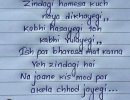 Zindagi homesa kuch
naya dikhayegi ,,
Kabhi Hasayegi toh
kabhi rulayegi ,,
Ish par bharosa mat karna
Yeh zindagi hai
Na jaane kis mod par
akela chhod jayegi ...